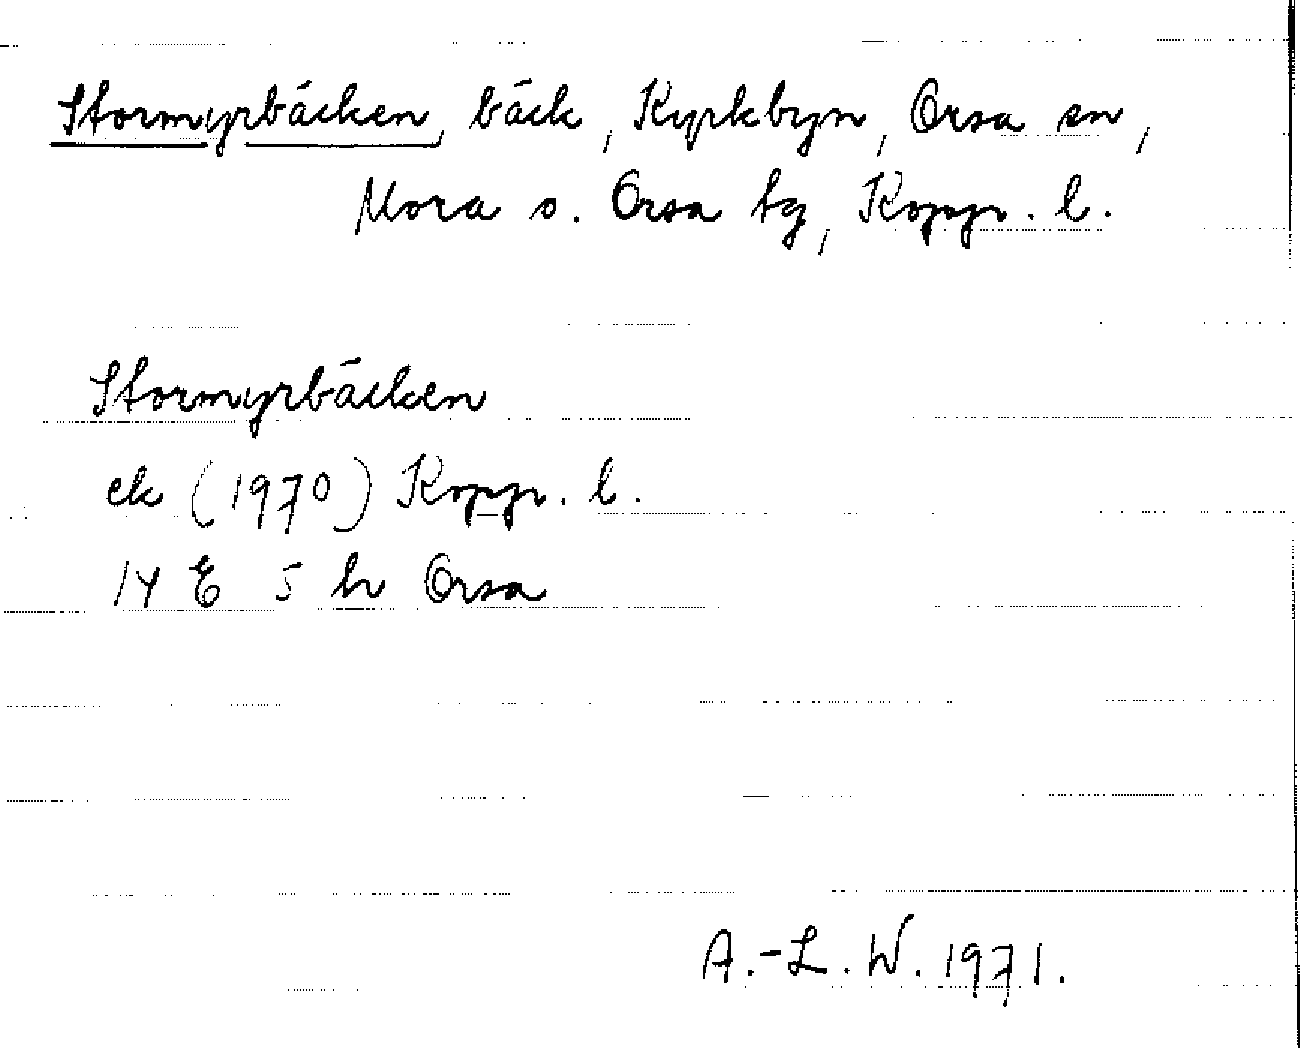 Stormyrbäcken, bäck, Kyrkbyn, Orsa sn,
Mora o. Orsa tg, Kopp. l.
Stormyrbäcken
ek (1970) Kopp. l.
14 E 5 h Orsa
A.-L. W. 1971.